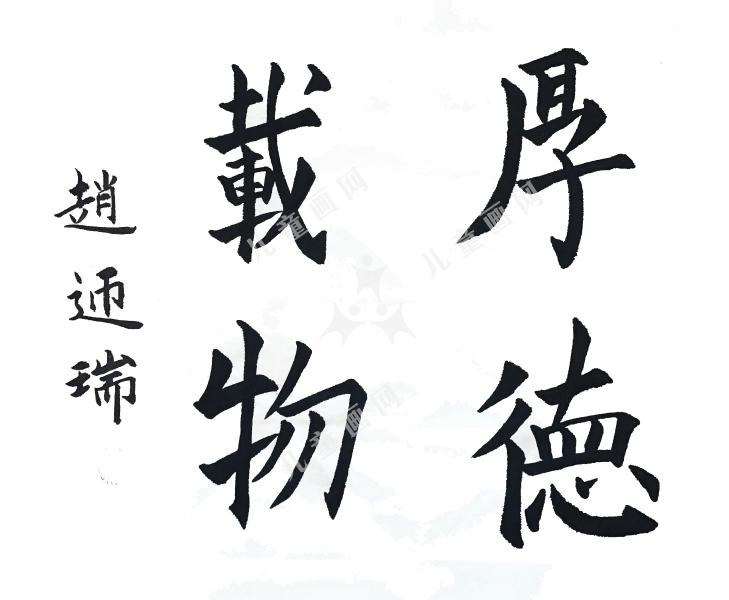 厚德
載物
趙迊瑞
儿童画网
儿童画网
儿童画网